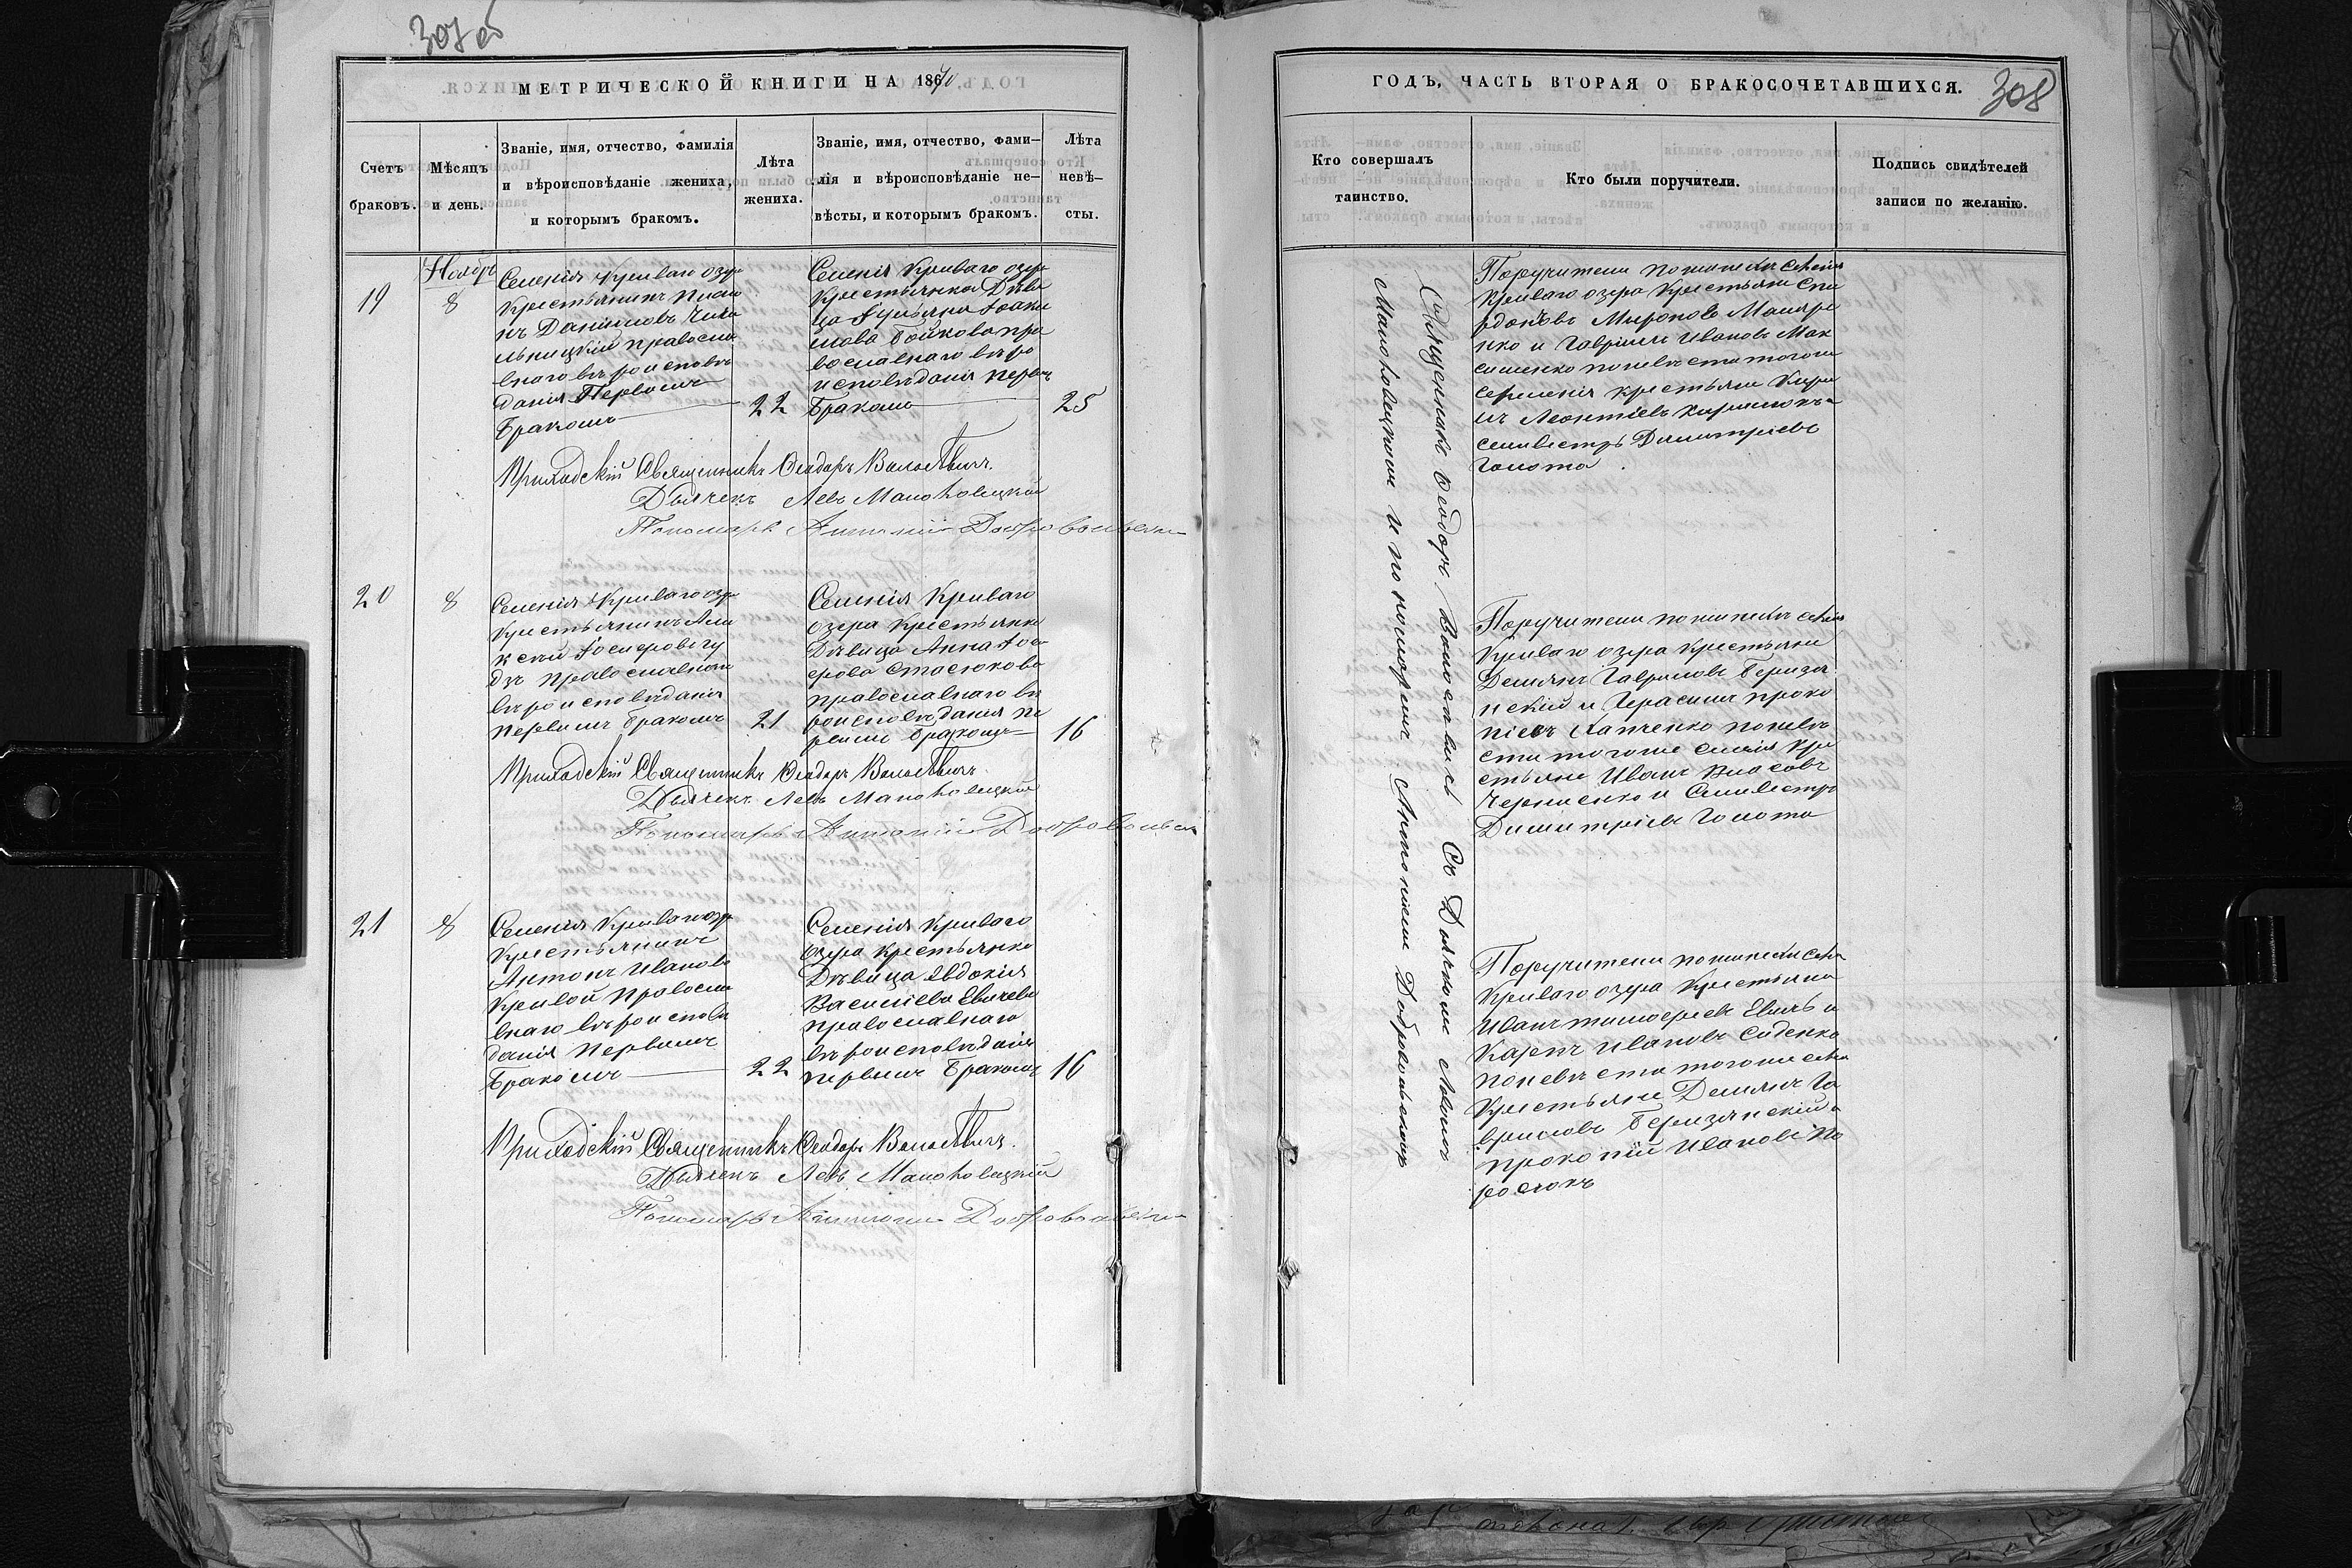 307 об
МЕТРИЧЕСКОЙ КНИГИ НА 1870
Счетъ браковъ.
Мѣсяцъ и день.
Званіе, имя, отчество, фамилія
и вѣроисповѣданіе жениха,
и которымъ бракомъ.
Лѣта
жениха.
Званіе, имя, отчество, фами-
лія и вѣроисповѣданіе не-
вѣсты, и которымъ бракомъ.
Лѣта
невѣ-
сты.
19
Ноябрь
8
Селенія Криваго озер
Крестьянинъ
Даніиловъ
православ
наго вѣроисповѣ
данія Первымъ
Бракомъ
22
Селенія Криваго озер
Крестьянка Дѣви
ца Іуліана Іоаки
мова Бойкова пра
вославнаго вѣро
исповѣданія первы
Бракомъ
25
Приходскій Священникъ Ѳеодоръ
Дьячекъ Левъ Маньковецкій
Пономарь Антоній Добровольск
20
8
Селенія Криваго озер
Крестьянинъ Але
ксѣй Іосифовъ Гу
дзъ православнаго
вѣроисповѣданія
первымъ бракомъ
21
Селенія Криваго
озера Крестьянка
Дѣвица Анна Іос
ифова Стасюкова
православнаго вѣ
роисповѣданія пе
рвымъ бракомъ
16
Приходскій Священникъ Ѳеодоръ
Дьячекъ Левъ Маньковецкій
Пономарь Антоній Добровольск
21
8
Селенія Криваго озр
Крестьянинъ
Антонъ Ивановъ
Кривой Правосла
внаго вѣроисповѣ
данія Первымъ
Бракомъ
22
Селенія Криваго
Озера Крестьянка
Дѣвица Евдокія
Василіева
православнаго
вѣроисповѣданія
первымъ Бракомъ
16
Приходскій Священникъ Ѳеодоръ
Дьячекъ Левъ Маньковецкій
Пономарь Антоній Добровольск
ГОДЪ, ЧАСТЬ ВТОРАЯ О БРАКОСОЧЕТАВШИХСЯ.
308
Кто совершалъ
таинство.
Кто были поручители.
Подпись свидѣтелей
записи по желанію.
Священникъ Ѳеодоръ Съ Дьячкомъ Львомъ
Маньковецкимъ и пономаремъ Антоніемъ Добровольскимъ
Поручители по женихѣ Селенія
Криваго озера Крестьяне Спи
ридонъ Мироновъ
и Гавріилъ Ивановъ Мак
сименко по невѣстѣ тогоже
селенія крестьяне Кири
лъ Леонтіевъ
Силивестръ Димитріевъ
Голота
Поручители по женихѣ Селенія
Криваго озера Крестьяне
Деміянъ Гавриловъ Березя
нскій и Герасимъ Проко
піевъ Капченко по невѣ
стѣ тогоже Селенія Кре
стьяне Иванъ Власовъ
Черненко и Силивестръ
Димитріевъ Голота
Поручители по женихѣ Селен
Криваго озера Крестьяне
Иванъ Тимофеевъ и
Карпъ Ивановъ Сиденко
по невѣстѣ тогоже Селен
Крестьяне Деміянъ Га
вриловъ Березянскій и
Прокопій Ивановъ По
росюкъ